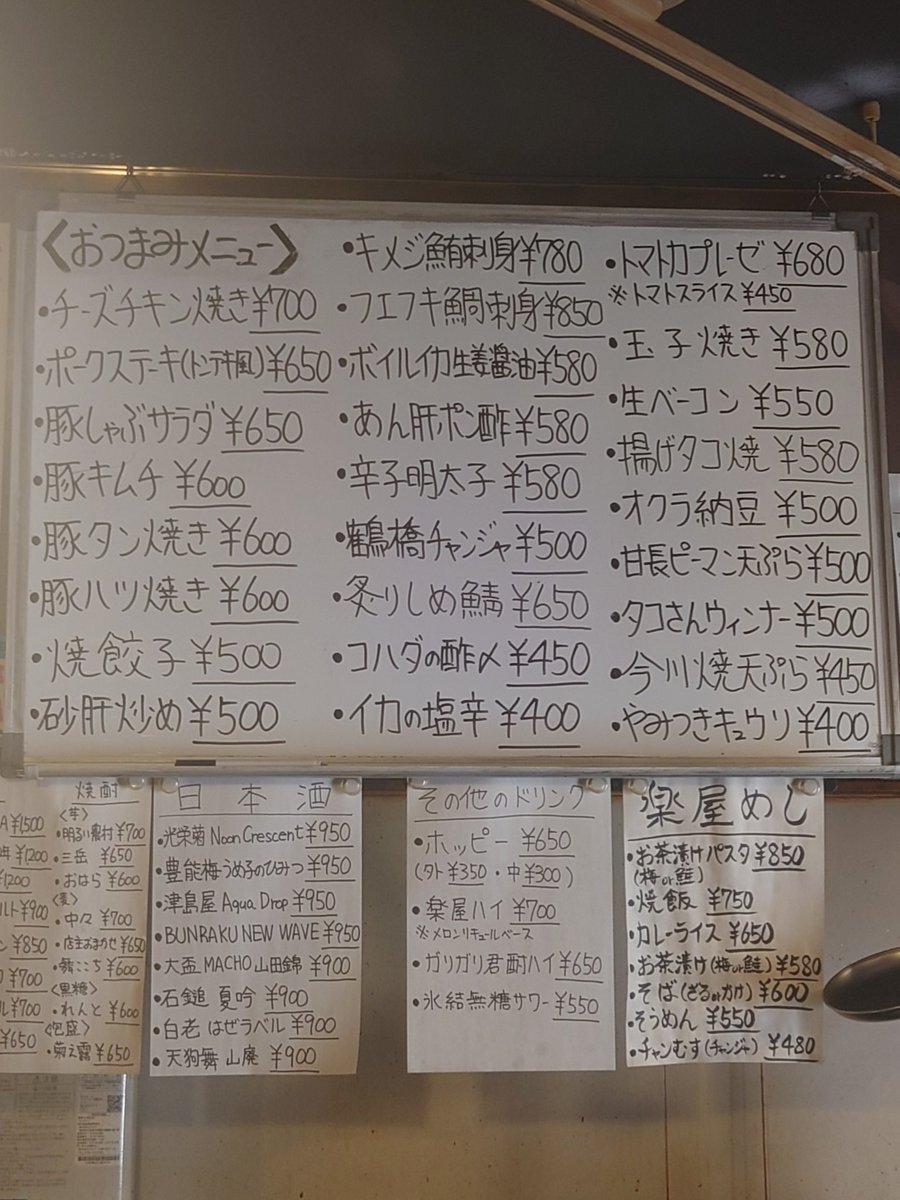 〈おつまみメニュー〉
・チーズチキン焼き¥700
・ポークステーキ(トンテキ風)¥650
・豚しゃぶサラダ¥650
・豚キムチ¥600
・豚タン焼き¥600
・豚ハツ焼き¥600
・焼餃子¥500
・砂肝炒め¥500
・キメジ鮪刺身¥780
・フエフキ鯛刺身¥850
・ボイルイカ生姜醤油¥580
・あん肝ポン酢¥580
・辛子明太子¥580
・鶴橋チャンジャ¥500
・炙りしめ鯖¥650
・コハダの酢〆¥450
・イカの塩辛¥400
・トマトカプレーゼ¥680
※トマトスライス¥450
・玉子焼き¥580
・生ベーコン¥550
・揚げタコ焼¥580
・オクラ納豆¥500
・甘長ピーマン天ぷら¥500
・タコさんウィンナー¥500
・今川焼天ぷら¥450
・やみつきキュウリ¥400
A¥1500
¥1200
¥1200
ルト¥900
ン¥850
¥700
ル¥700
¥650
焼酎
〈芋〉
・明るい農村¥700
・三岳¥650
・おはら¥600
〈麦〉
・中々¥700
・店主おまかせ¥650
・舞ここち¥600
〈黒糖〉
・れんと¥600
〈泡盛〉
・菊之露¥650
日本酒
・光栄菊 Noon Crescent¥950
・豊能梅うめ子のひみつ¥950
・津島屋 Aqua Drop¥950
・BUNRAKU NEW WAVE¥950
・大盃 MACHO 山田錦¥900
・石鎚 夏吟¥900
・白老 はぜラベル¥900
・天狗舞 山廃¥900
その他のドリンク
・ホッピー¥650
(外¥350・中¥300)
・楽屋ハイ¥700
※メロンリキュールベース
・ガリガリ君酎ハイ¥650
・氷結無糖サワー¥550
楽屋めし
・お茶漬けパスタ¥850
(梅or鮭)
・焼飯¥750
・カレーライス¥650
・お茶漬け(梅or鮭)¥580
・そば(ざるorかけ)¥600
・そうめん¥550
・チャンむす(チャンジャ)¥480